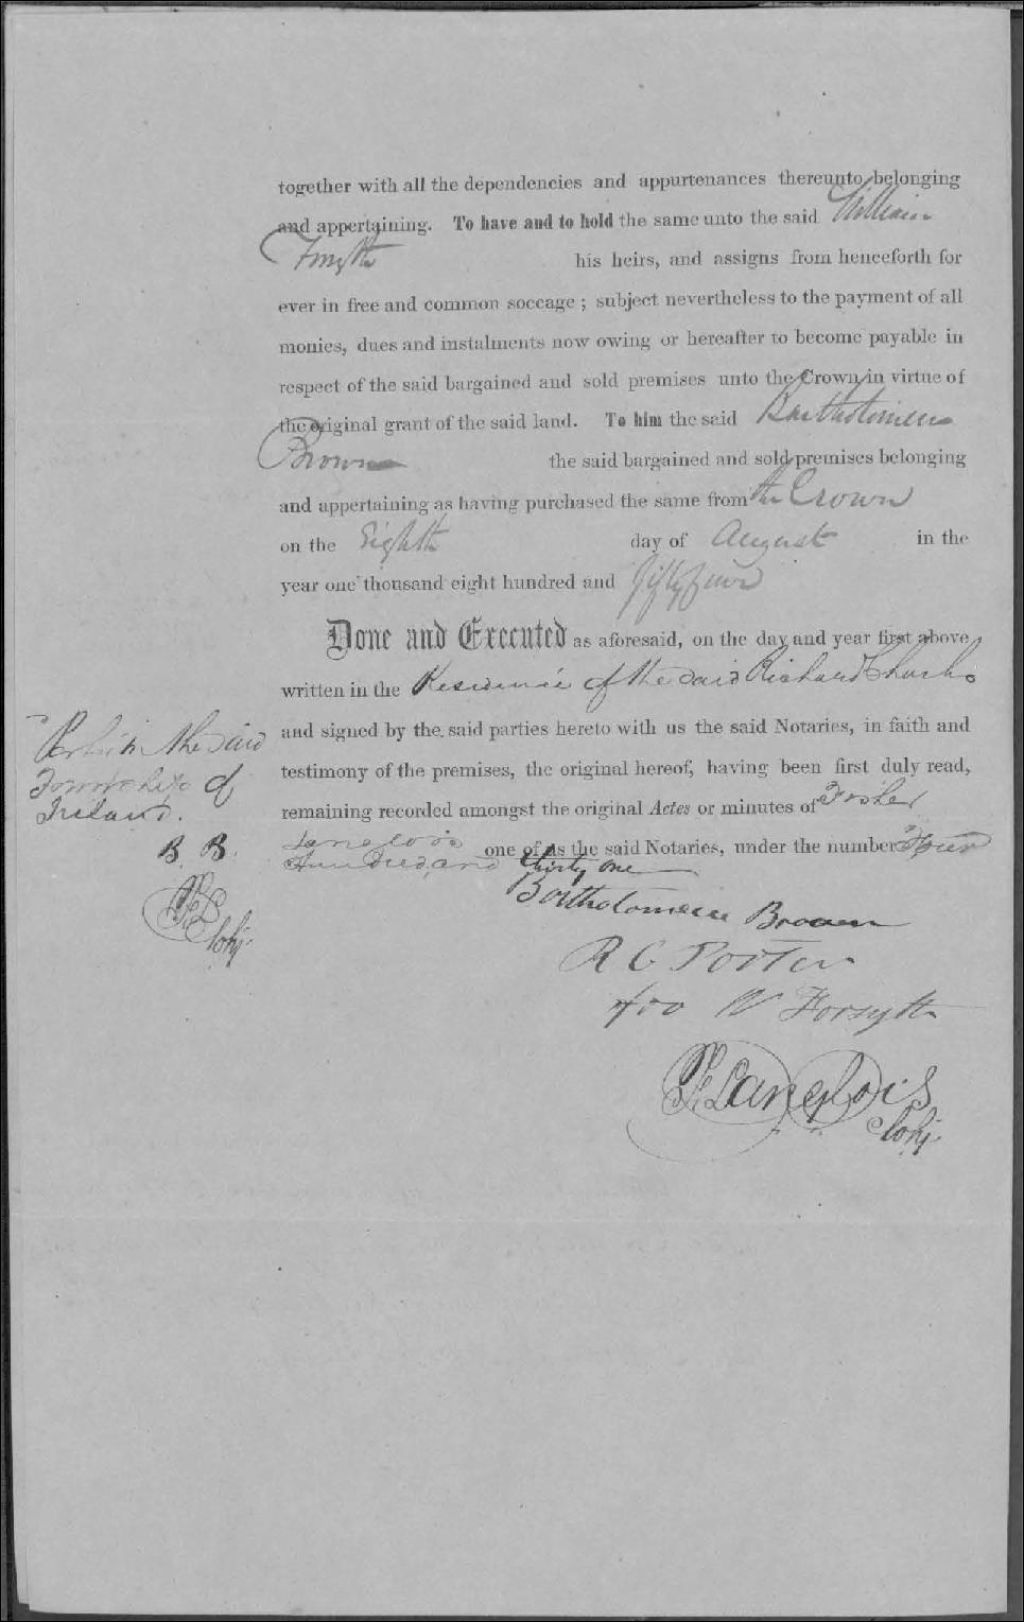 together with all the dependencies and appurtenances thereunto belonging
and appertaining. To have and to hold the same unto the said William
Forsyth his heirs, and assigns from henceforth for
ever in free and common soccage ; subject nevertheless to the payment of all
monies, dues and instalments now owing or hereafter to become payable in
respect of the said bargained and sold premises unto the Crown in virtue of
the original grant of the said land. To him the said Bartholomew
Brown the said bargained and sold premises belonging
and appertaining as having purchased the same from the Crown
on the Eighth day of August in the
year one thousand eight hundred and fifty four
Done and Executed as aforesaid, on the day and year first above
written in the Residence of the said Richard
and signed by the said parties hereto with us the said Notaries, in faith and
testimony of the premises, the original hereof, having been first duly read,
remaining recorded amongst the original Actes or minutes of
Langlois one of us the said Notaries, under the number Four
Hundred and thirty one
the said
Township of
Ireland.
B. B.
Bartholomew Brown
R C Porter
W Forsyth
Langlois